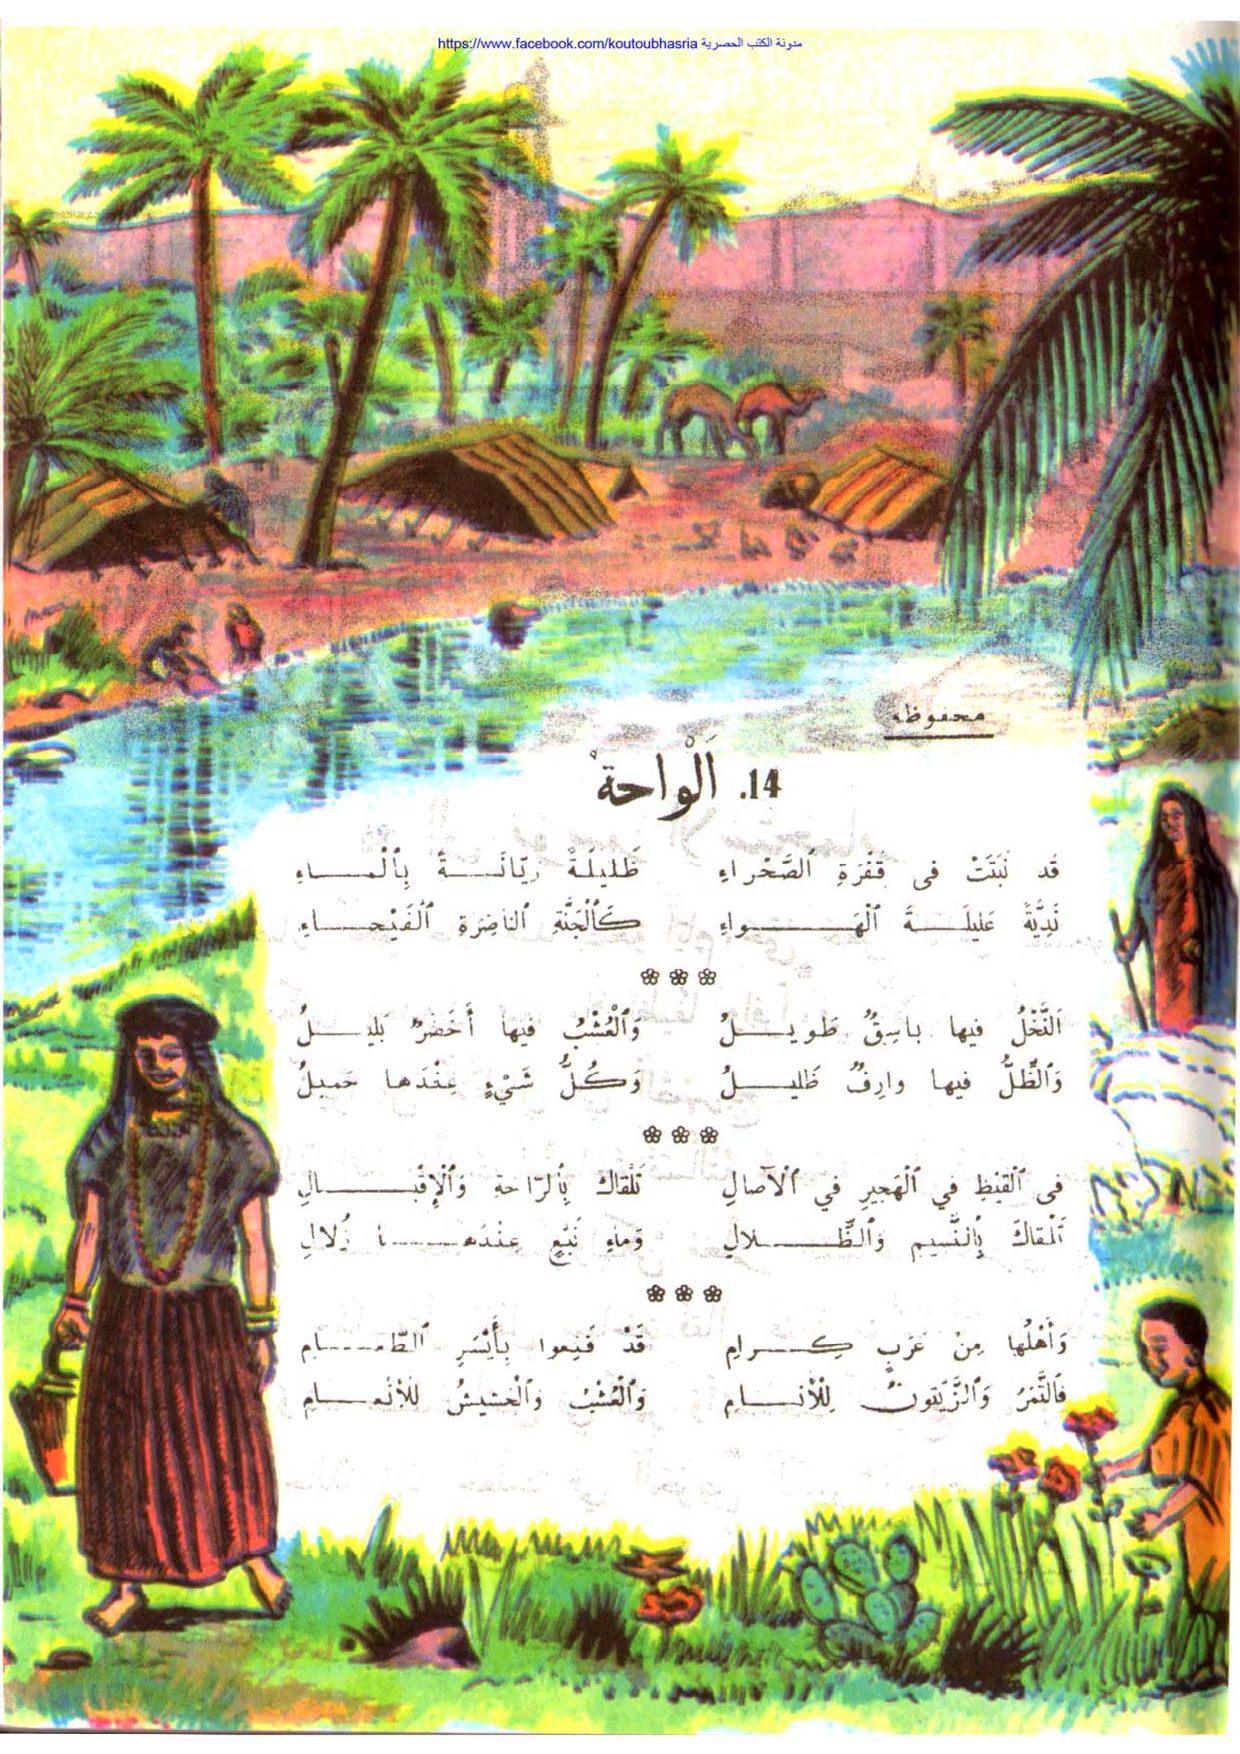 https://www.facebook.com/koutoubhasria مدونة الكتب الحصرية
محفوظة
14. اَلْواحةُ
قَد نَبَتَتْ فى قَفْرَةِ ٱلصَّحْراءِ ظَليلَةً رَيّانَــــةً بِٱلْمــــاءِ
نَدِيَّةً عَليلَــــةَ ٱلْهَــــواءِ كَٱلْجَنَّةِ ٱلنّاضِرَةِ ٱلْفَيْحــــاءِ
اَلنَّخْلُ فيها باسِقٌ طَويــــلُ وَٱلْعُشْبُ فيها أَخْضَرٌ بَليــــلُ
وَٱلظِّلُّ فيها وارِفٌ ظَليــــلُ وَكُلُّ شَيْءٍ عِنْدَها جَميلُ
فى ٱلْقَيْظِ في ٱلْهَجيرِ في ٱلْآصالِ تَلْقاكَ بِٱلرّاحةِ وَٱلْإِقْبــــالِ
تَلْقاكَ بِٱلنَّسيمِ وَٱلظِّــــلالِ وَماءِ نَبْعٍ عِنْدَهــــا زُلالِ
وَأَهْلُها مِنْ عَرَبٍ كِــــرامِ قَدْ قَنِعوا بِأَيْسَرِ ٱلطَّعــــامِ
فَالتَّمْرُ وَٱلزَّيْتونُ لِلْأَنــــامِ وَٱلْعُشْبُ وَٱلْحَشيشُ لِلْأَنْعــــامِ